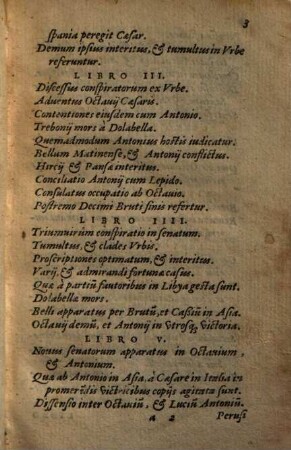 3
spania peregit Cæsar.
Demum ipsius interitus, & tumultus in Vrbe
referuntur.
LIBRO III.
Discessus conspiratorum ex Vrbe.
Aduentus Octauij Cæsaris.
Contentiones eiusdem cum Antonio.
Trebonij mors à Dolabella.
Quemadmodum Antonius hostis iudicatur.
Bellum Mutinense, & Antonij conflictus.
Hircij & Pansæ interitus.
Conciliatio Antonij cum Lepido.
Consulatus occupatio ab Octauio.
Postremo Decimi Bruti finis refertur.
LIBRO IIII.
Triumuirûm conspiratio in senatum.
Tumultus, & clades Vrbis.
Proscriptiones optimatum, & interitus.
Varij, & admirandi fortunæ casus.
Quæ à partiũ fautoribus in Libya gesta sunt.
Dolabellæ mors.
Belli apparatus per Brutũ, et Cassiũ in Asia.
Octauij demũ, et Antonij in vtrosq; victoria.
LIBRO V.
Nouus senatorum apparatus in Octauium,
& Antonium.
Quæ ab Antonio in Asia, à Cæsare in Italia in
promerẽtis victricibus copijs agitata sunt.
Dissensio inter Octauiũ, & Luciũ Antoniũ.
a 2 Perusi